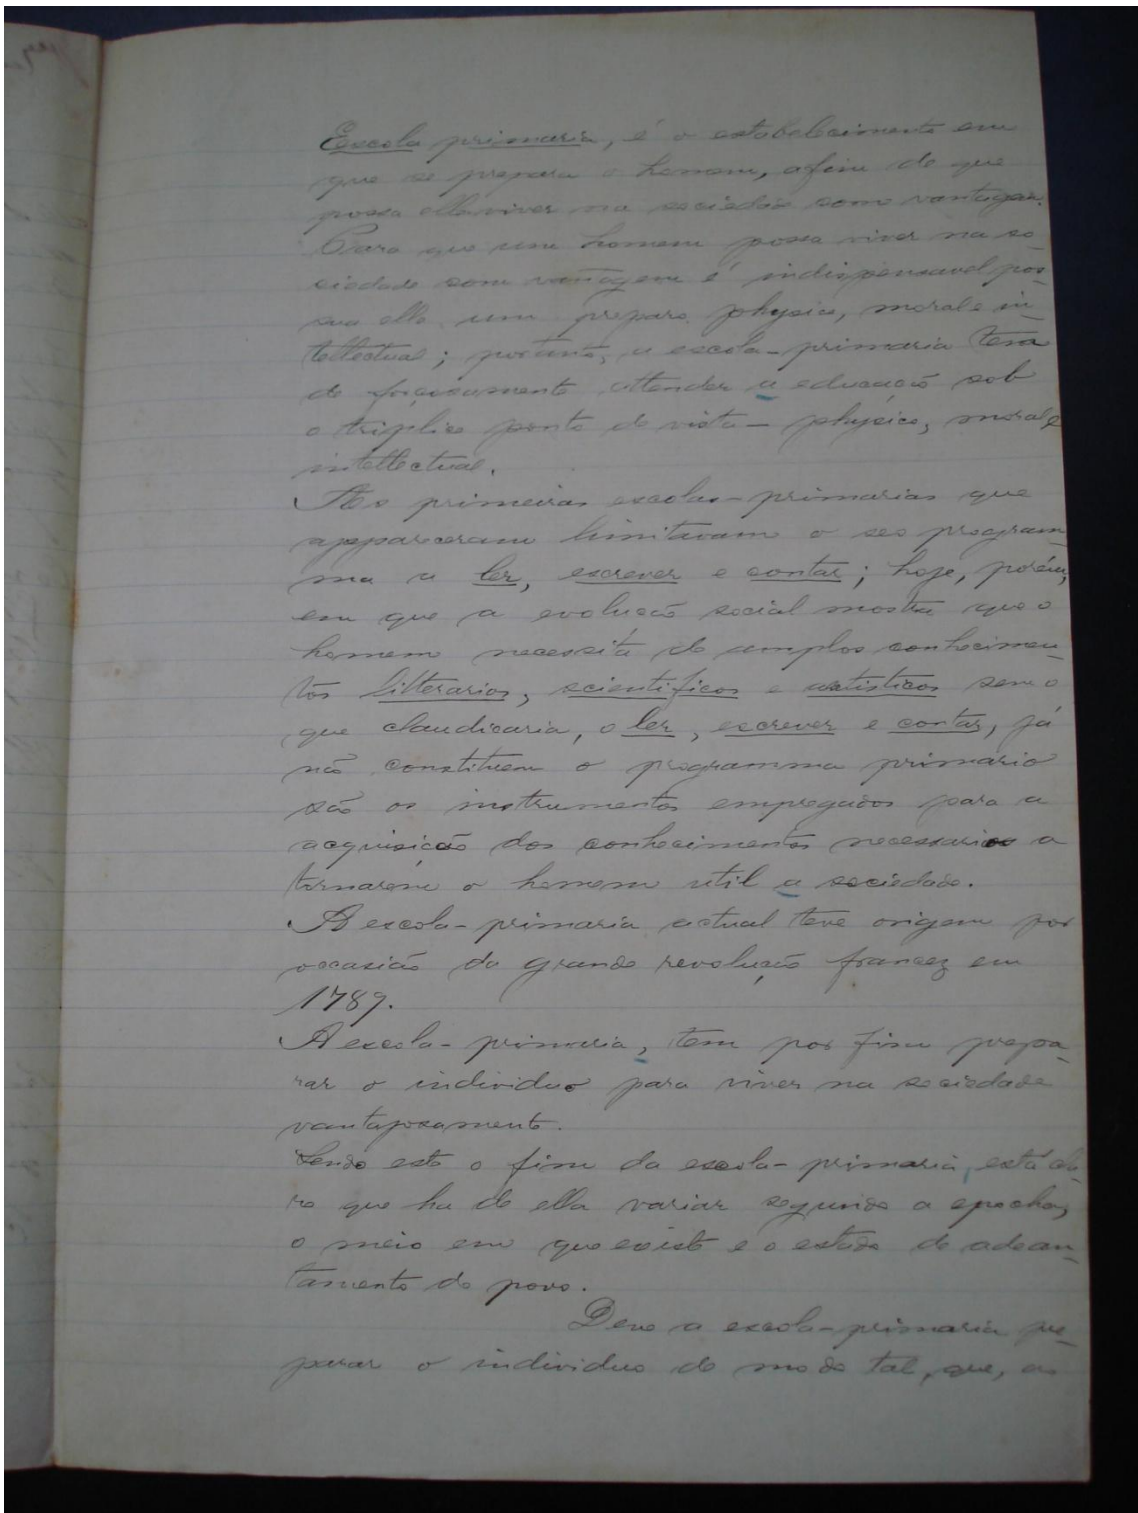 Escola primaria, é o estabelecimento em
que se prepara o homem, afim de que
possa elle viver na sociedade como vantagem.
Para que um homem possa viver na so-
ciedade com vantagem é indispensavel pos-
sua elle um preparo physico, moral e in-
tellectual; portanto, a escola-primaria tera
de forçosamente attender a educação sob
o triplice ponto de vista - physico, moral e
intellectual.
As primeiras escolas-primarias que
appareceram limitavam o seo program-
ma a ler, escrever e contar; hoje, porém,
em que a evolução social mostra que o
homem necessita de amplos conhecimen-
tos litterarios, scientificos e artisticos sem o
que claudicaria, o ler, escrever e contar, já
não constituem o programma primario
são os instrumentos empregados para a
acquisição dos conhecimentos necessarios a
tornarem o homem util a sociedade.
A escola-primaria actual teve origem por
occasião da grande revolução francez em
1789.
A escola-primaria, tem por fim prepa-
rar o individuo para viver na sociedade
vantajosamente.
Sendo este o fim da escola-primaria, está cla-
ro que ha de ella variar segundo a epocha,
o meio em que existe e o estado de adean-
tamento do povo.
Deve a escola-primaria pre-
parar o individuo de modo tal, que, ao